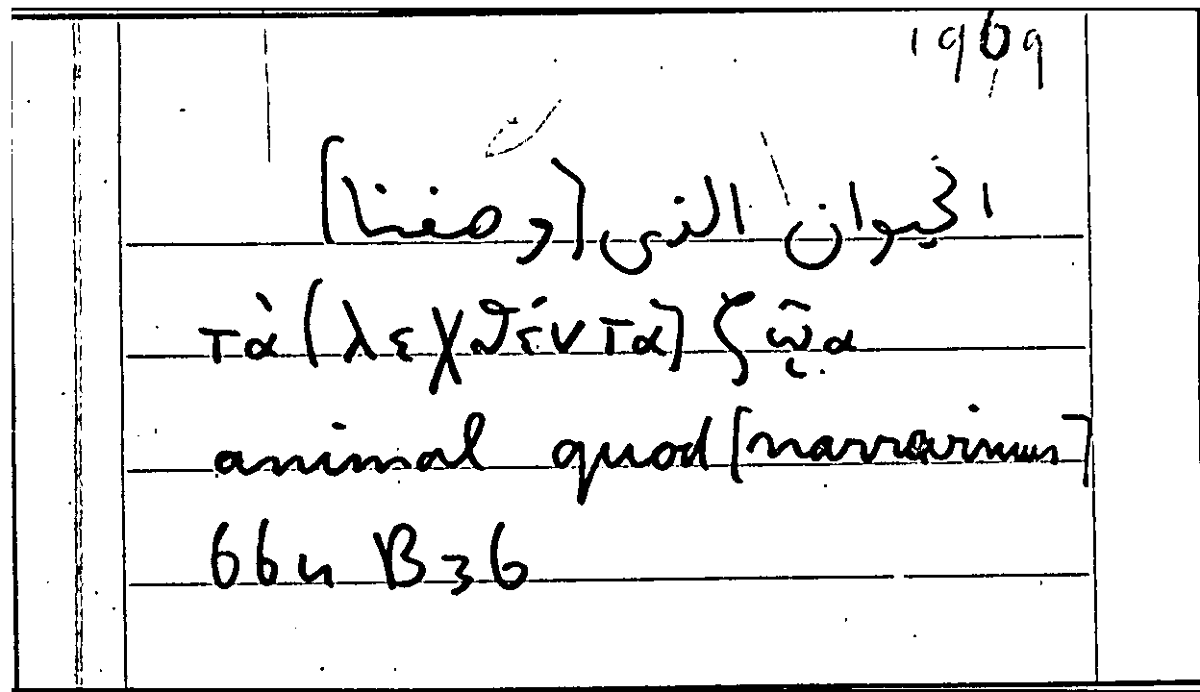 1969
الحيوان الذى [وصفنا]
τὰ (λεχθέντα] ζῷα
animal quod [narravimus]
66n B36